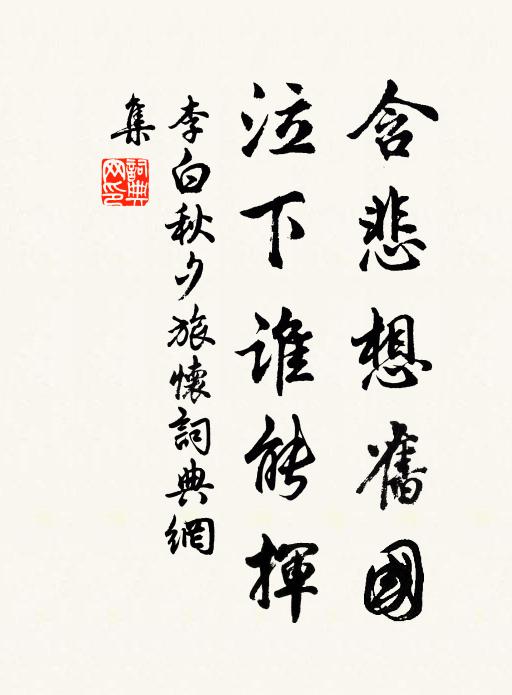 含悲想舊國
泣下誰能揮
李白秋夕旅懷詞典網
集
詞典網印